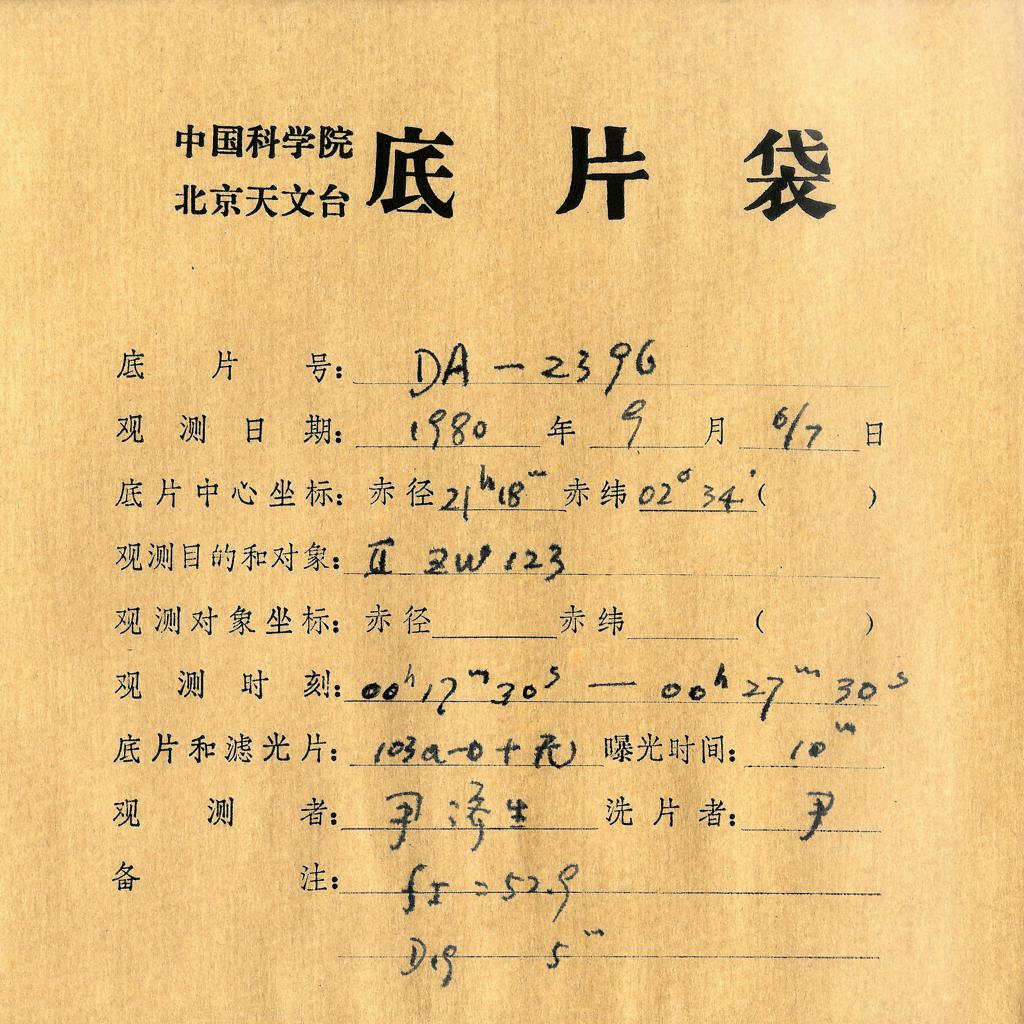 中国科学院
北京天文台
底片袋
底片号: DA-2396
观测日期: 1980 年 9 月 6/7 日
底片中心坐标: 赤径 21h18m 赤纬 02°34′ ( )
观测目的和对象: II ZW 123
观测对象坐标: 赤径 赤纬 ( )
观测时刻: 00h17m30s — 00h27m30s
底片和滤光片: 103a-O+无 曝光时间: 10m
观测者: 尹济生 洗片者: 尹
备注: fI=52.9
D19 5m